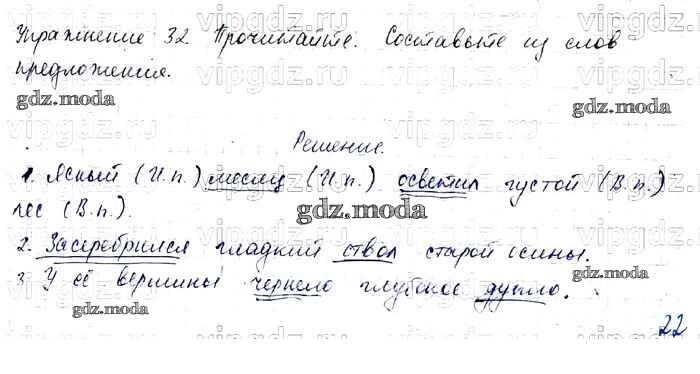 Упражнение 32. Прочитайте. Составьте из слов
предложения.
gdz.moda
gdz.moda
Решение.
1. Ясный (И.п.) месяц (И.п.) осветил густой (В.п.)
лес (В.п.).
gdz.moda
2. Засеребрился гладкий ствол старой осины.
3. У её вершины чернело глубокое дупло.
gdz.moda
gdz.moda
22
vipgdz.ru